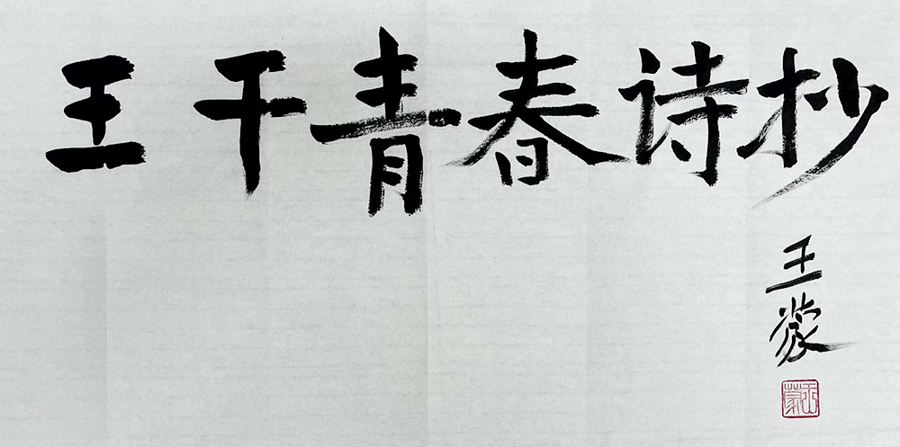 王干青春诗抄
王蒙
王蒙